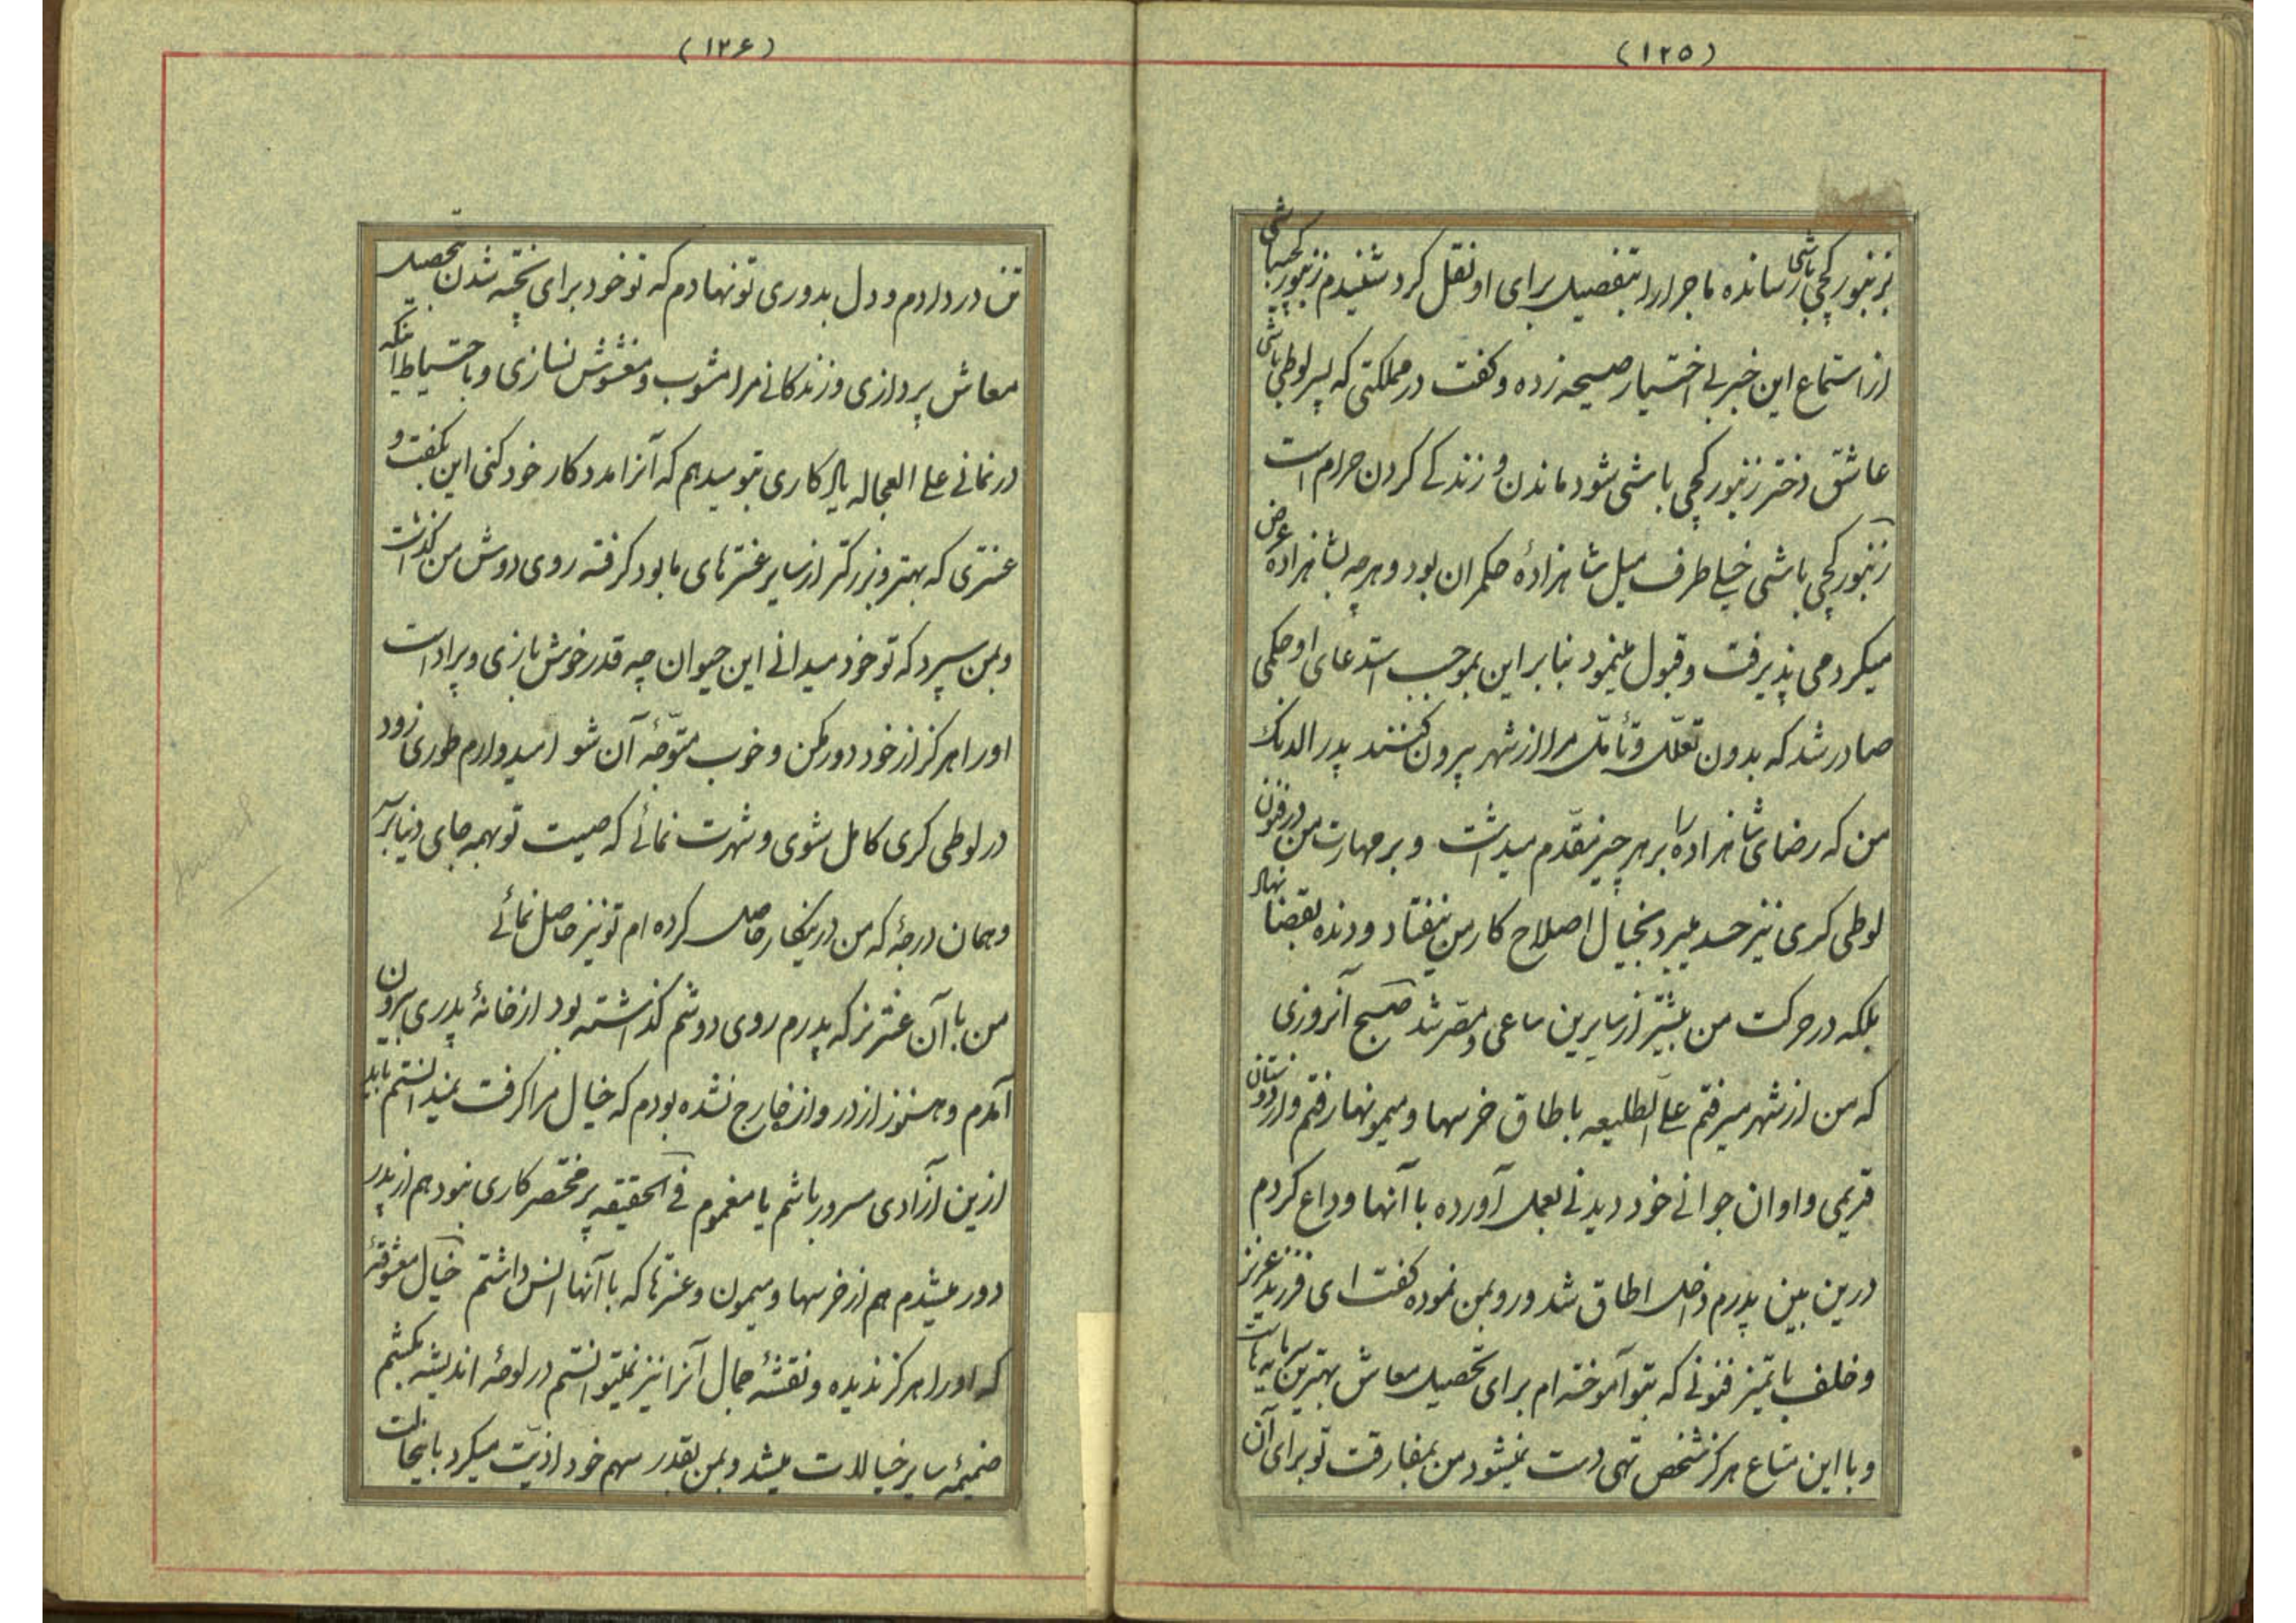 (۱۲۵)
بزنبورکچی باشی رسانده ماجرا را بتفصیل برای او نقل کرد شنیدم زنبورکچیباشی
از استماع این خبر بی اختیار صیحه زده و کفت در مملکتی که پسر لوطی باشی
عاشق دختر زنبورکچی باشی شود ماندن و زندکی کردن حرام است
زنبورکچی باشی خیلی طرف میل شاهزادهٔ حکمران بود و هرچه بشاهزاده عرض
میکرد می پذیرفت و قبول مینمود بنابراین بموجب استدعای او حکمی
صادر شد که بدون تعلّل و تأمّل مرا از شهر بیرون کنند پدر الدنک
من که رضای شاهزاده را بر هر چیز مقدّم میداشت و بر مهارت من در فنون
لوطی کری نیز حسد میبرد بخیال اصلاح کار من نیفتاد و دنده بقضا نهاد
بلکه در حرکت من بیشتر از سایرین ساعی و مصرّ شد صبح آنروزی
که من از شهر میرفتم علی الطلیعه باطاق خرسها و میمونها رفتم و از دوستان
قدیمی و اوان جوانی خود دیدنی بعمل آورده با آنها وداع کردم
درین بین پدرم داخل اطاق شد و رو بمن نموده کفت ای فرزند عزیز
و خلف با تمیز فنونی که بتو آموخته ام برای تحصیل معاش بهترین سرمایه هاست
و با این متاع هرکز شخص تهی دست نمیشود من بمفارقت تو برای آن
(۱۲۶)
تن در دادم و دل بدوری تو نهادم که تو خود برای پخته شدن بتحصیل
معاش پردازی و زندکانی مرا مشوب و مغشوش نسازی و با احتیاط اینکه
در نمانی علی العجاله یادکاری بتو میدهم که آنرا مددکار خود کنی این بکفت و
عنتری که بهتر و بزرکتر از سایر عنترهای ما بود کرفته روی دوش من کذاشت
و بمن سپرد که تو خود میدانی این حیوان چه قدر خوش بازی و پر اداست
او را هرکز از خود دور مکن و خوب متوّجه آن شو امیدوارم طوری زود
در لوطی کری کامل شوی و شهرت نمائی که صیت تو بهمه جای دنیا برسد
و همان درجهٔ که من درینکار حاصل کرده ام تو نیز حاصل نمائی
من با آن عنتر نر که پدرم روی دوشم کذاشته بود از خانهٔ پدری بیرون
آمدم و هنوز از دروازه خارج نشده بودم که خیال مرا کرفت نمیدانستم باید
ازین آزادی مسرور باشم یا مغموم فی الحقیقه پر مختصر کاری نبود هم از پدر
دور میشدم هم از خرسها و میمون و عنترها که با آنها انس داشتم خیال معشوقهٔ
که او را هرکز ندیده و نقشهٔ جمال آنرا نیز نمیتوانستم در لوحهٔ اندیشه بکشم
ضمیمهٔ سایر خیالات میشد و بمن بقدر سهم خود اذیّت میکرد باینحالت